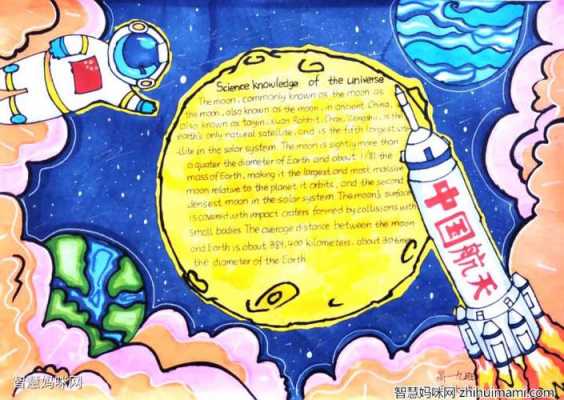 Science knowledge of the universe
The moon, commonly known as the moon as
the moon, also known as the moon, in ancient China,
also known as Taiyin, Xuan Rabbit, Chan, is the
earth's only natural satellite, and is the fifth largest
-llite in the solar system. The moon is slightly more than
a quater the diameter of Earth and about 1/81 the
mass of Earth, making it the largest and most massive
moon relative to the planet it orbits, and the second
densest moon in the solar system. The moon's surface
is covered with impact craters formed by collisions with
small bodies. The average distance between the moon
and Earth is about 384,400 kilometers, about 30 times
the diameter of the Earth.
中国航天
智慧妈咪网
智慧妈咪网 zhihuimami.com